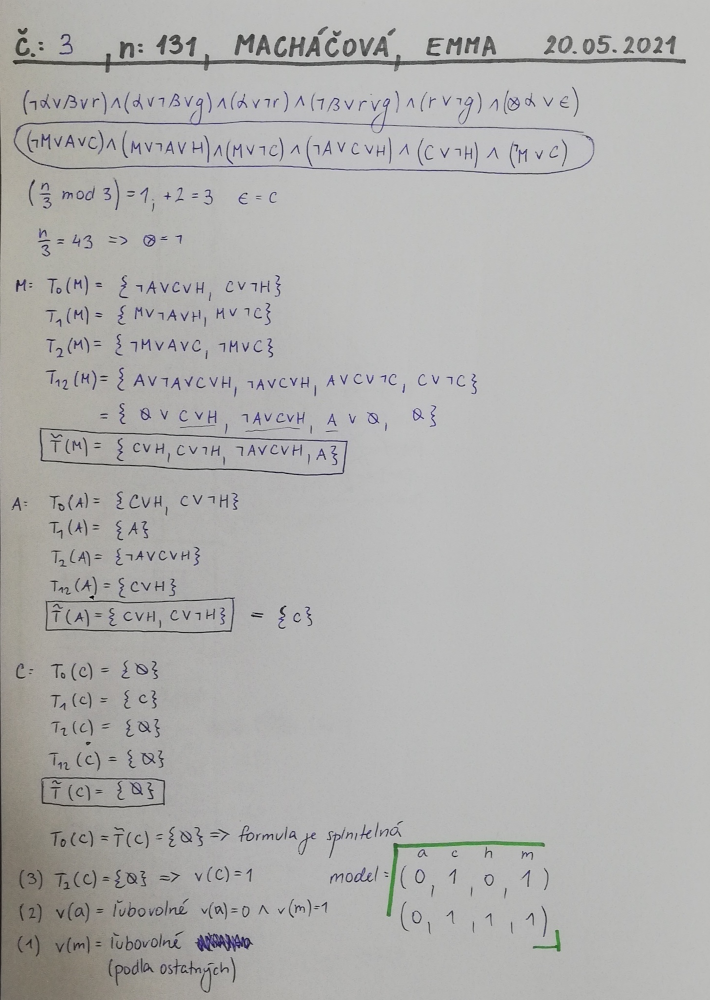 Č.: 3, n: 131, MACHÁČOVÁ, EMMA 20.05.2021
(¬α∨β∨r)∧(α∨¬β∨g)∧(α∨¬r)∧(¬β∨r∨g)∧(r∨¬g)∧(⊗α∨ε)
(¬M∨A∨C)∧(M∨¬A∨H)∧(M∨¬C)∧(¬A∨C∨H)∧(C∨¬H)∧(¬M∨C)
(n/3 mod 3) = 1; +2 = 3 ε = C
n/3 = 43 => ⊗ = ¬
M: T₀(M) = {¬A∨C∨H, C∨¬H}
T₁(M) = {M∨¬A∨H, M∨¬C}
T₂(M) = {¬M∨A∨C, ¬M∨C}
T₁₂(M) = {A∨¬A∨C∨H, ¬A∨C∨H, A∨C∨¬C, C∨¬C}
= {∅ ∨ C∨H, ¬A∨C∨H, A ∨ ∅, ∅}
T̃(M) = {C∨H, C∨¬H, ¬A∨C∨H, A}
A: T₀(A) = {C∨H, C∨¬H}
T₁(A) = {A}
T₂(A) = {¬A∨C∨H}
T₁₂(A) = {C∨H}
T̃(A) = {C∨H, C∨¬H} = {C}
C: T₀(C) = {∅}
T₁(C) = {C}
T₂(C) = {∅}
T₁₂(C) = {∅}
T̃(C) = {∅}
T₀(C) = T̃(C) = {∅} => formula je splniteľná
a c h m
(3) T₂(C) = {∅} => v(C) = 1 model = (0, 1, 0, 1)
(2) v(a) = ľubovolné v(a)=0 ∧ v(m)=1 (0, 1, 1, 1)
(1) v(m) = ľubovolné
(podla ostatných)